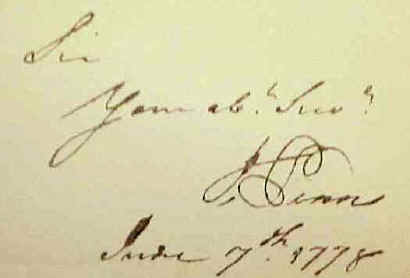 Sir
Your ob.t Serv.t
J Penn
June 7th 1778